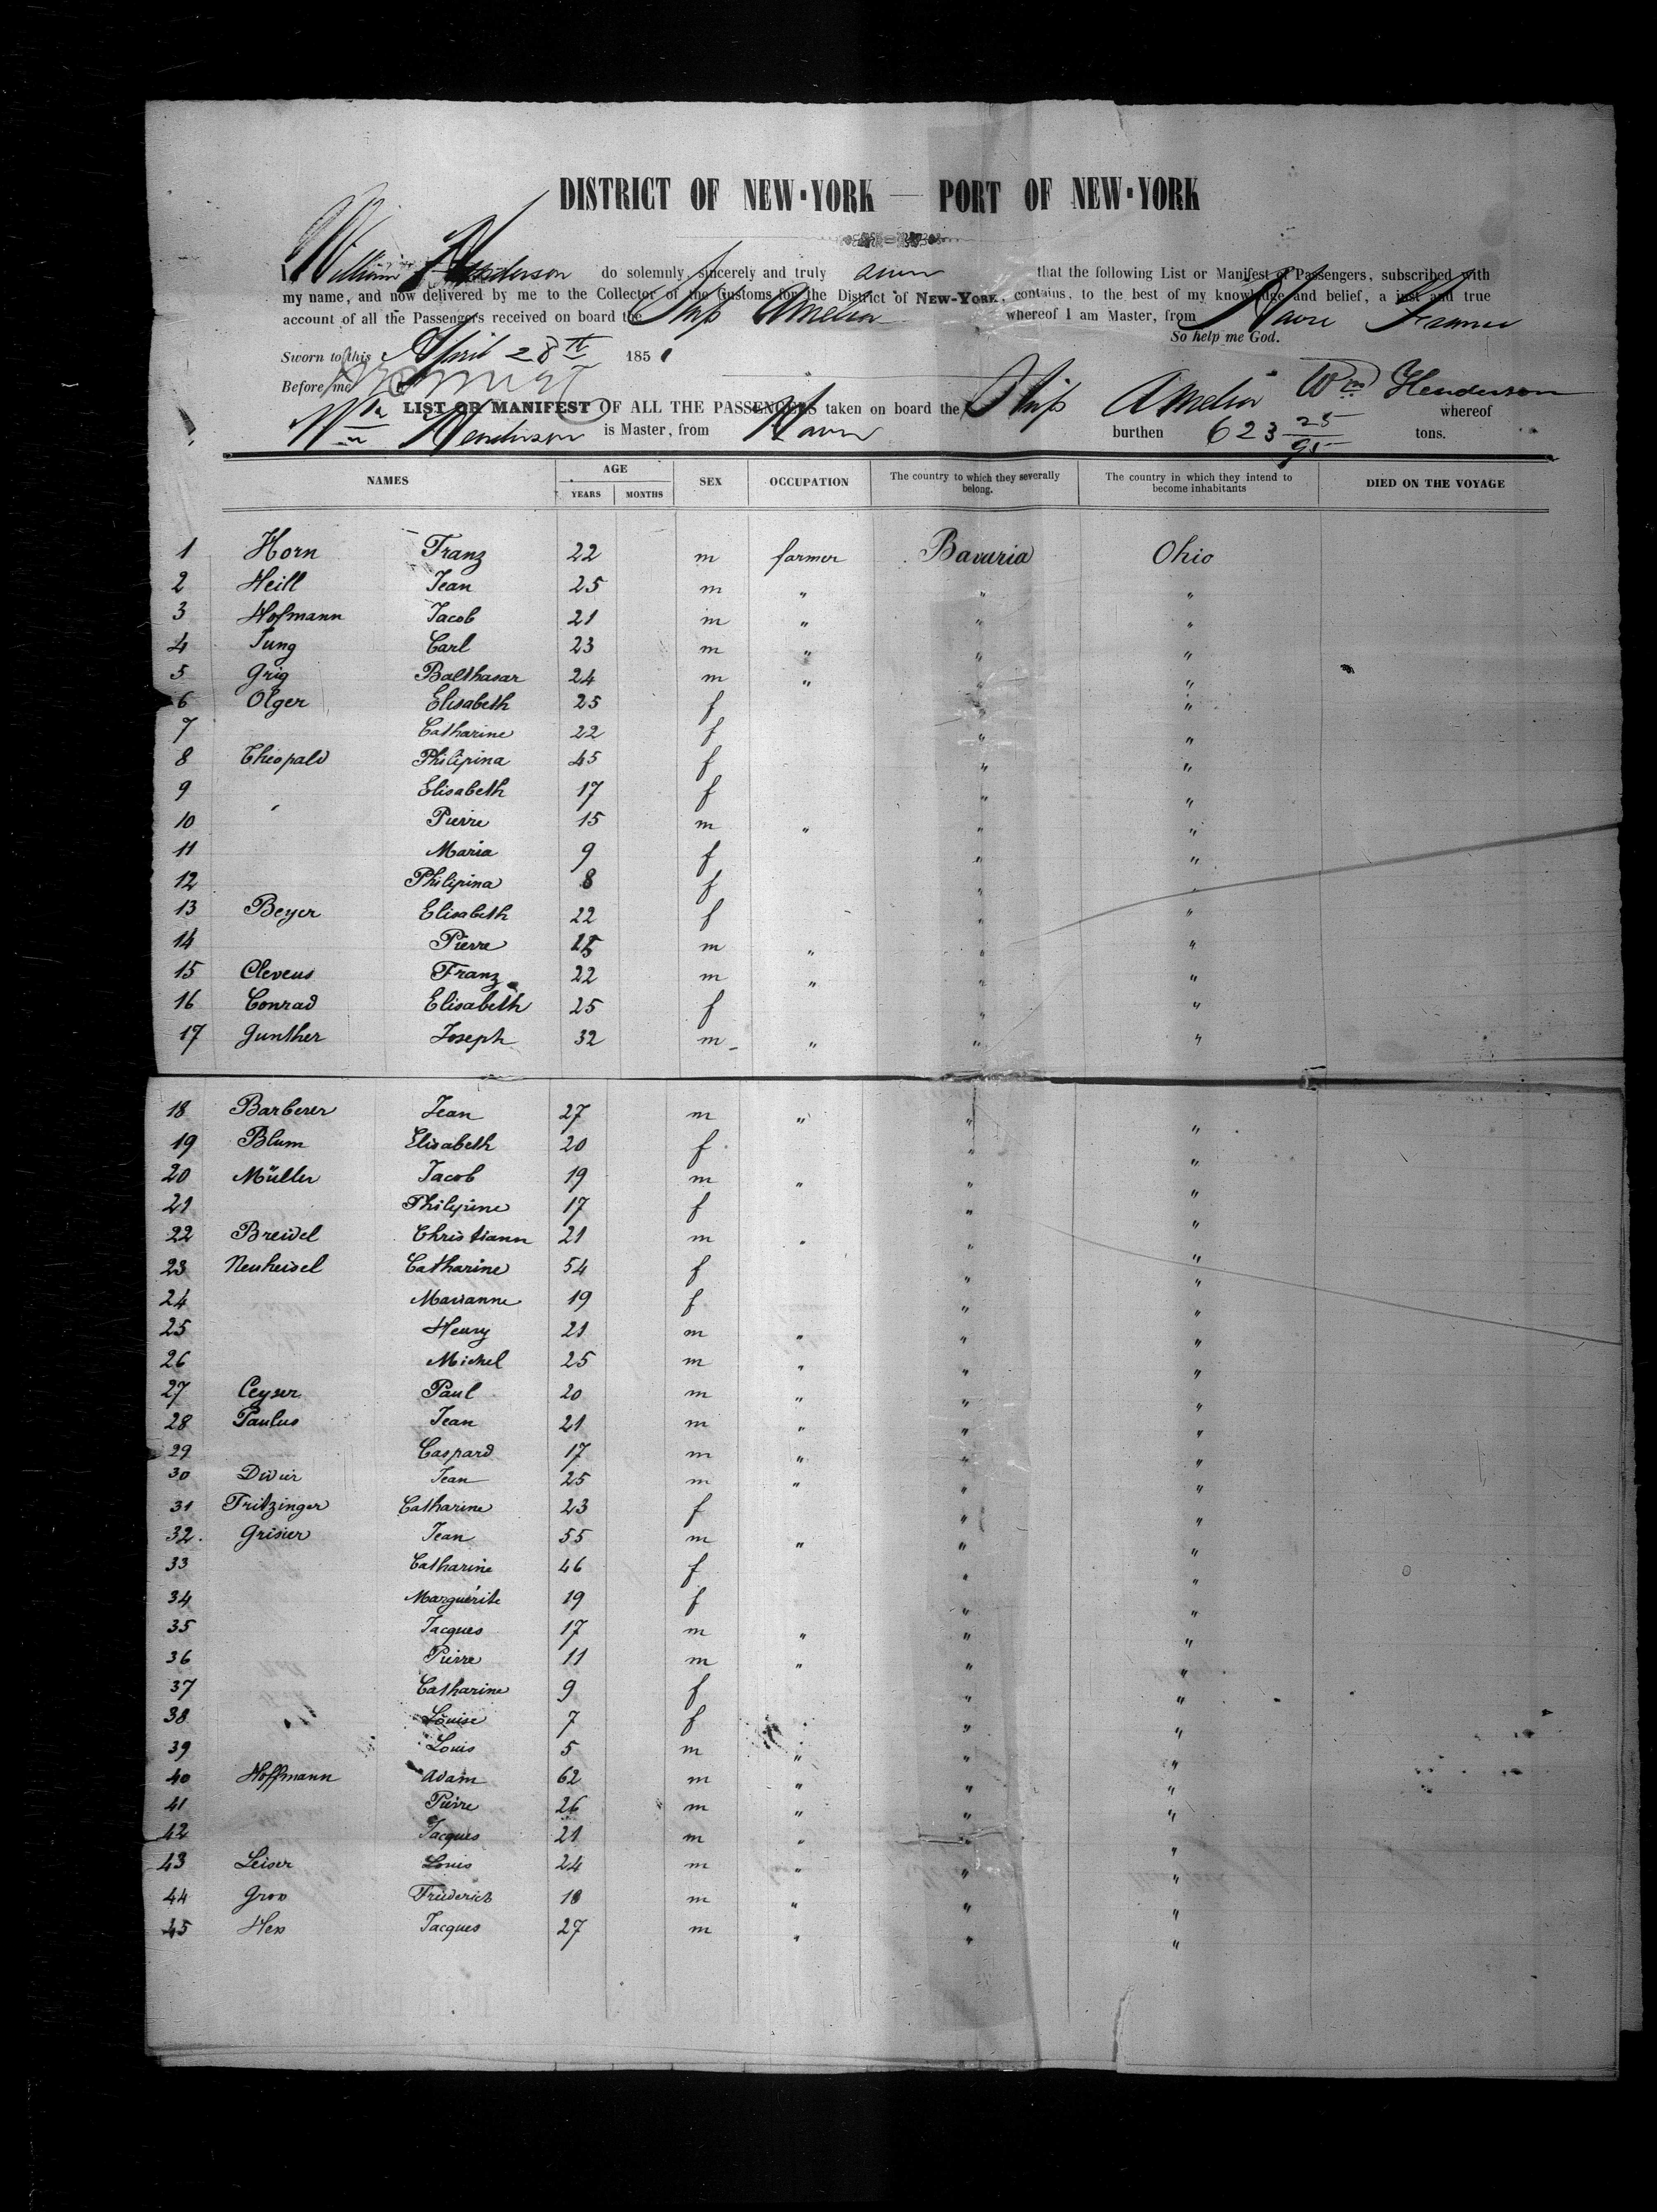 DISTRICT OF NEW-YORK — PORT OF NEW-YORK
I William Henderson do solemnly, sincerely and truly that the following List or Manifest of Passengers, subscribed with
my name, and now delivered by me to the Collector of the Customs for the District of NEW-YORK, contains, to the best of my knowledge and belief, a just and true
account of all the Passengers received on board the Ship Amelia whereof I am Master, from Havre France
So help me God.
Sworn to this April 28th 1851
Before me
Wm Henderson
LIST OR MANIFEST OF ALL THE PASSENGERS taken on board the Ship Amelia whereof
Wm Henderson is Master, from Havre burthen 623 25/95 tons.
NAMES AGE SEX OCCUPATION The country to which they severally belong. The country in which they intend to become inhabitants DIED ON THE VOYAGE
YEARS MONTHS
1 Horn Franz 22 m farmer Bavaria Ohio
2 Heill Jean 25 m " " "
3 Hofmann Jacob 21 m " " "
4 Jung Carl 23 m " " "
5 Grig Balthasar 24 m " " "
6 Olger Elisabeth 25 f " "
7 Catharine 22 f " "
8 Theopald Philipina 45 f " "
9 Elisabeth 17 f " "
10 Pierre 15 m " " "
11 Maria 9 f " "
12 Philipina 8 f " "
13 Beyer Elisabeth 22 f " "
14 Pierre m " " "
15 Cleveus Franz 22 m " " "
16 Conrad Elisabeth 25 f " "
17 Gunther Joseph 32 m " " "
18 Barberer Jean 27 m " " "
19 Blum Elisabeth 20 f " "
20 Müller Jacob 19 m " " "
21 Philipine 17 f " "
22 Breidel Christiann 21 m " " "
23 Neuheisel Catharine 54 f " "
24 Marianne 19 f " "
25 Henry 21 m " " "
26 Michel 25 m " " "
27 Ceyser Paul 20 m " " "
28 Paulus Jean 21 m " " "
29 Caspard 17 m " " "
30 Jean 25 m " " "
31 Fritzinger Catharine 23 f " "
32 Grisier Jean 55 m " " "
33 Catharine 46 f " "
34 Marguérite 19 f " "
35 Jacques 17 m " " "
36 Pierre 11 m " " "
37 Catharine 9 f " "
38 Louise 7 f " "
39 Louis 5 m " " "
40 Hoffmann Adam 62 m " " "
41 Pierre 26 m " " "
42 Jacques 21 m " " "
43 Leiser Louis 24 m " " "
44 Fréderick 18 m " " "
45 Jacques 27 m " " "